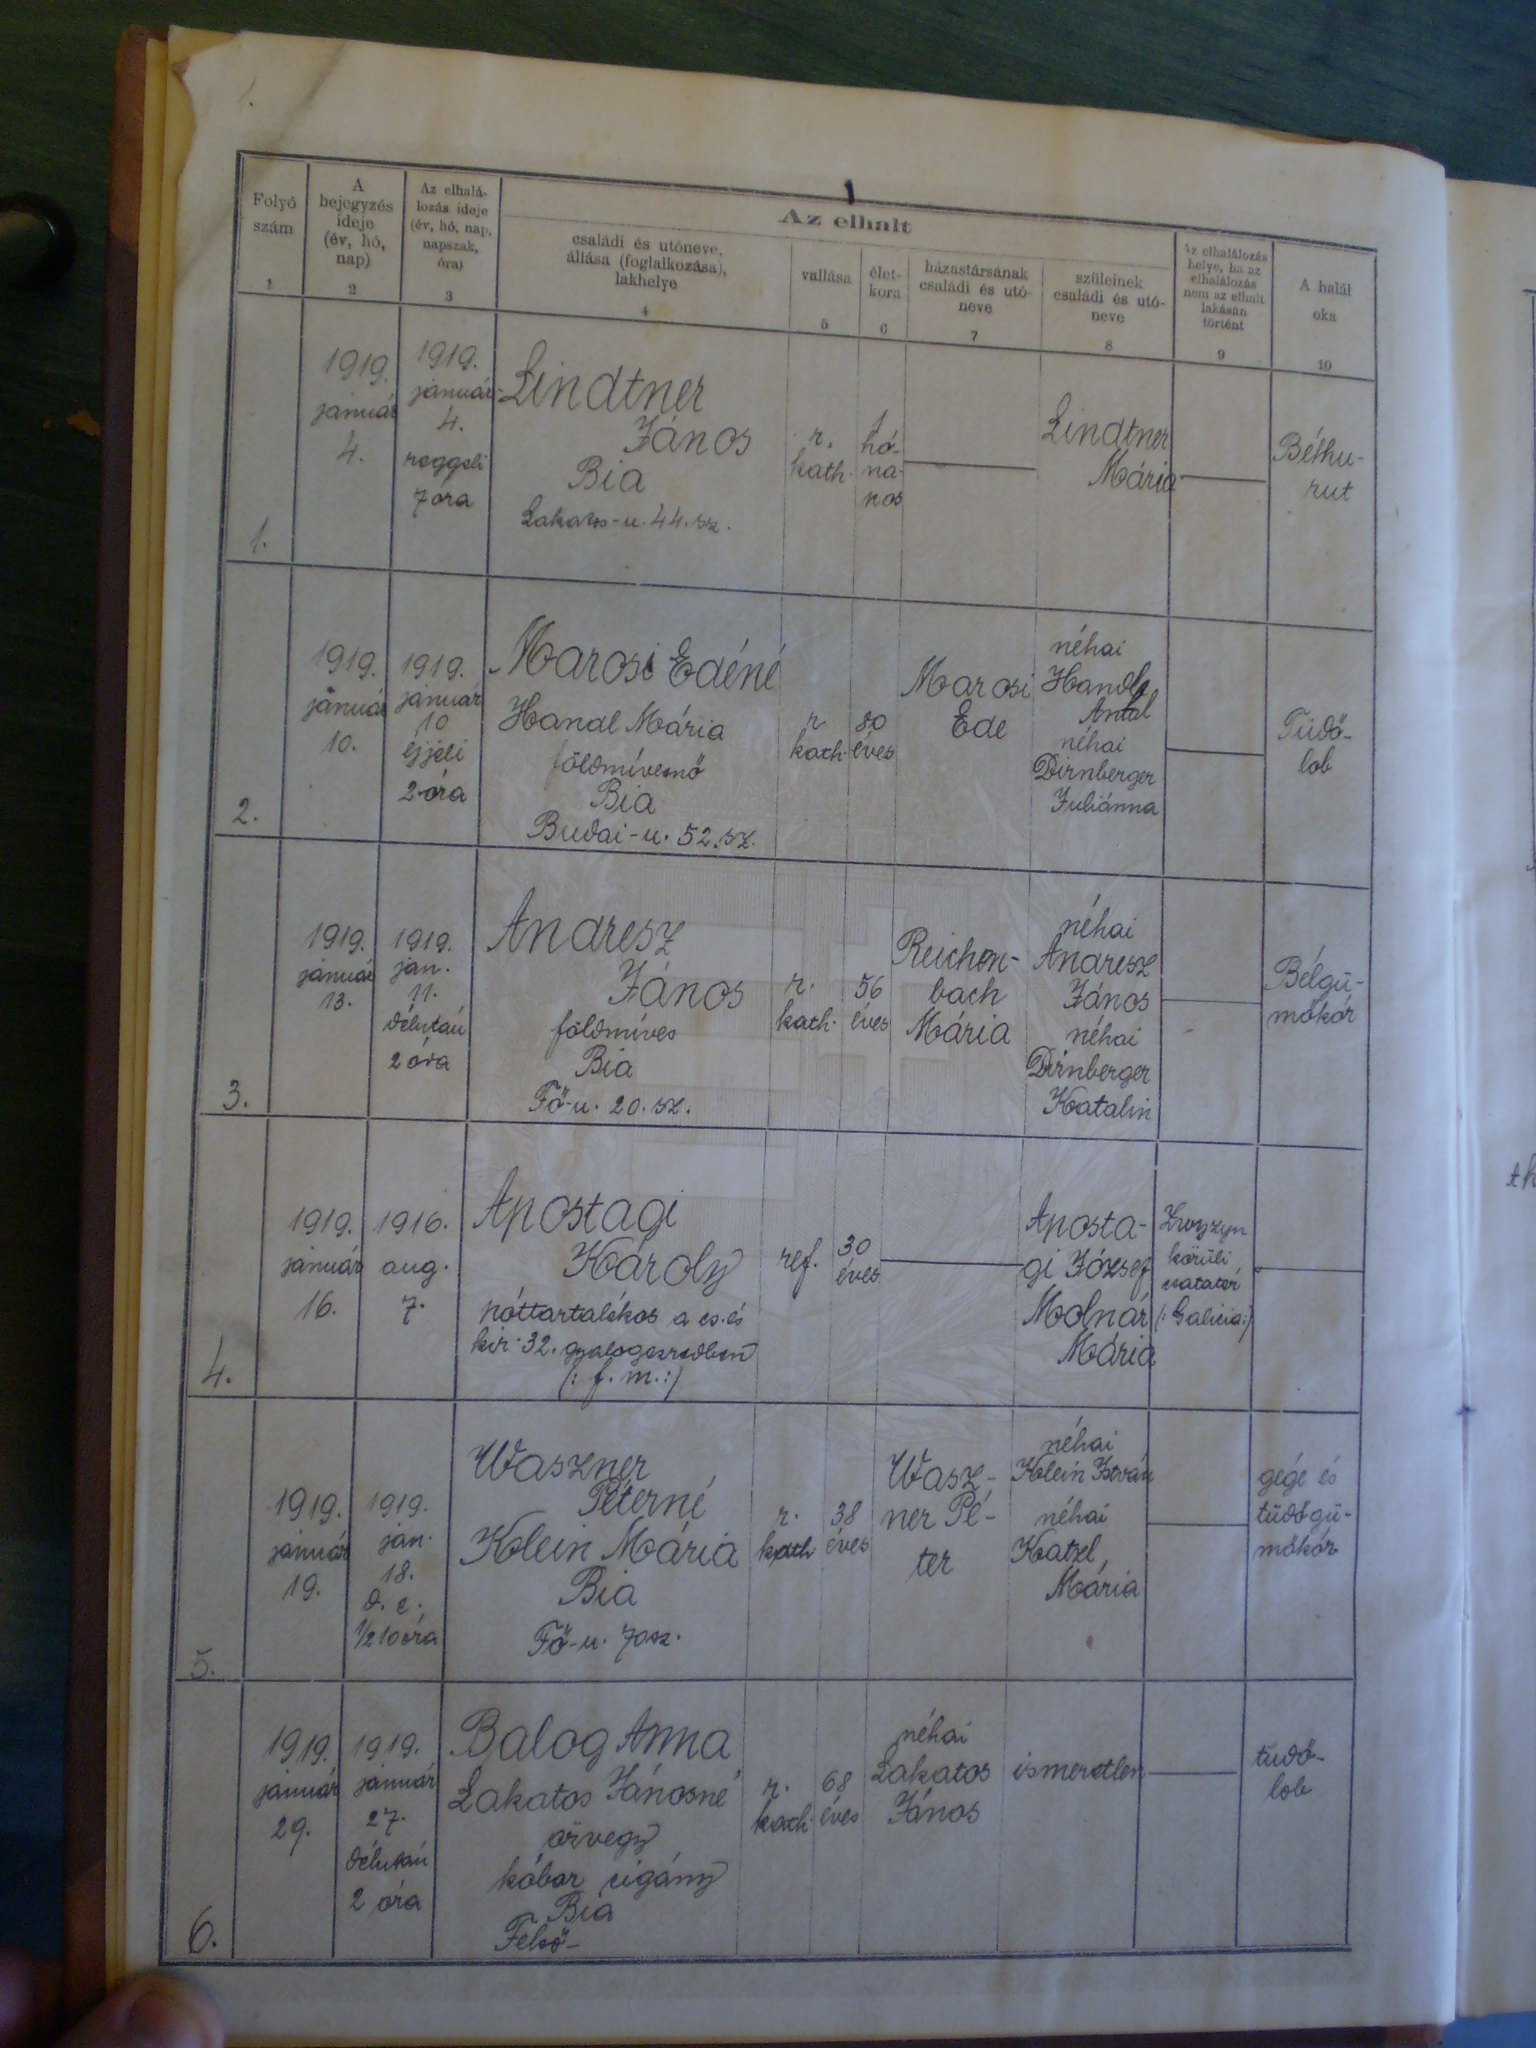 1.
1
Az elhalt
Folyó
szám
1
A
bejegyzés
ideje
(év, hó,
nap)
2
Az elhalá-
lozás ideje
(év, hó, nap,
napszak,
óra)
3
családi és utóneve,
állása (foglalkozása),
lakhelye
4
vallása
5
élet-
kora
6
házastársának
családi és utó-
neve
7
szüleinek
családi és utó-
neve
8
Az elhalálozás
helye, ha az
elhalálozás
nem az elhalt
lakásán
történt
9
A halál
oka
10
1.
1919.
január
4.
1919.
január
4.
reggeli
7 óra
Lindtner
János
Bia
Lakatos-u. 44. sz.
r.
kath.
1
hó-
na-
pos
Lindtner
Mária
Bélhu-
rut
2.
1919.
január
10.
1919.
január
10
éjjeli
2 óra
Marosi Edéné
Handl Mária
földmívesnő
Bia
Budai-u. 52. sz.
r.
kath.
80
éves
Marosi
Ede
néhai
Handl
Antal
néhai
Dirnberger
Juliánna
Tüdő-
lob
3.
1919.
január
13.
1919.
jan.
11.
délután
2 óra
Andresz
János
földmíves
Bia
Fő-u. 20. sz.
r.
kath.
56
éves
Reichen-
bach
Mária
néhai
Andresz
János
néhai
Dirnberger
Katalin
Bélgü-
mőkór
4.
1919.
január
16.
1916.
aug.
7.
Apostagi
Károly
póttartalékos a cs. és
kir. 32. gyalogezredben
(: f. m. :)
ref.
30
éves
Aposta-
gi József
Molnár
Mária
körüli
csatatér
(: Galicia :)
5.
1919.
január
19.
1919.
jan.
18.
d. e.
1/2 10 óra
Waszner
Péterné
Klein Mária
Bia
Fő-u. 70 sz.
r.
kath.
38
éves
Wasz-
ner Pé-
ter
néhai
Klein István
néhai
Katzl
Mária
gége és
tüdőgü-
mőkór
6.
1919.
január
29.
1919.
január
27.
délután
2 óra
Balog Anna
Lakatos Jánosné
özvegy
kóbor cigány
Bia
Felső-
r.
kath.
68
éves
néhai
Lakatos
János
ismeretlen
tüdő-
lob